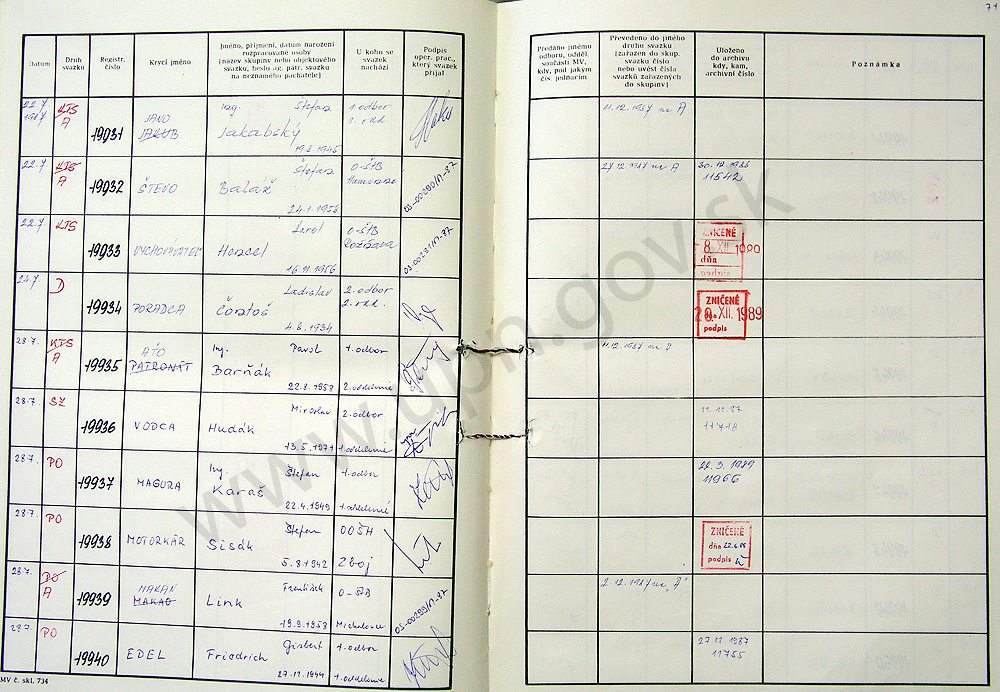 71
Datum
Druh svazku
Registr. číslo
Krycí jméno
Jméno, příjmení, datum narození rozpracované osoby (název skupiny nebo objektového svazku, heslo ag. pátr. svazku na neznámého pachatele)
U koho se svazek nachází
Podpis oper. prac., který svazek přijal
Předáno jinému odboru, odděl. součásti MV, kdy, pod jakým čís. jednacím
Převedeno do jiného druhu svazku (zařazen do skup. svazku číslo nebo uvést čísla svazků zařazených do skupiny)
Uloženo do archivu kdy, kam, archivní číslo
Poznámka
22.7 1987 KTS A 19931 JANO JAKUB Ing. Štefan Jakabský 19.8.1945 1. odbor 11.12.1987 A
22.7 KTS A 19932 ŠTEVO Štefan Baláž 24.1.1956 O-ŠTB 05-00299/17-87 27.12.1987 A 30.12.1986 11542
22.7. KTS 19933 Karol Hencel 16.11.1956 O-ŠTB Rožňava 05-00299/17-87 ZNIČENÉ 8 XII. 1989 dňa podpis
24.7. D 19934 PORADCA Ladislav Čontoš 4.8.1934 2. odbor ZNIČENÉ 20. XII. 1989 podpis
28.7. KTS A 19935 AŤO PATRONÁT Ing. Pavol Barňák 22.8.1953 1. odbor 2. oddelenie 11.12.1987
28.7. SZ 19936 VODCA Miroslav Hudák 13.5.1971 2. odbor 1. oddelenie 11.11.87 11718
28.7. PO 19937 MAGURA Ing. Štefan Karaš 22.4.1949 1. odbor 1. oddelenie 22.9.1989 11966
28.7. PO 19938 MOTORKÁR Štefan Sisák 5.8.1942 OOŠH Zboj ZNIČENÉ dňa podpis
28.7. DO A 19939 MAKAN MAKAO František Link 19.9.1953 O-ŠTB Michalovce 05-00299/17-87 2.12.1987 A
28.7. PO 19940 EDEL Gizbert Friedrich 27.12.1944 1. odbor 1. oddelenie 27.12.1987 11755
MV č. skl. 734
www.upn.gov.sk